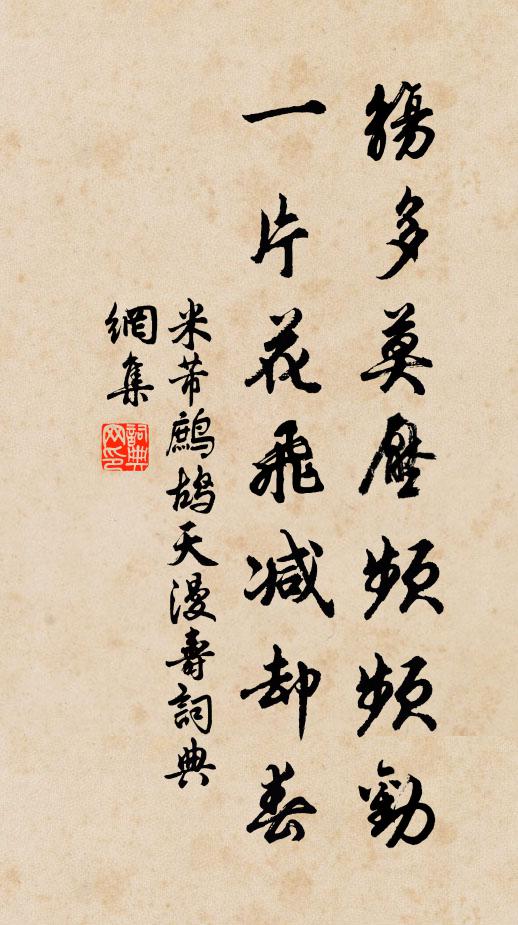 觴多莫厭頻頻勸
一片花飛減却春
米芾鷓鴣天漫壽詞典
網集
詞典
网印